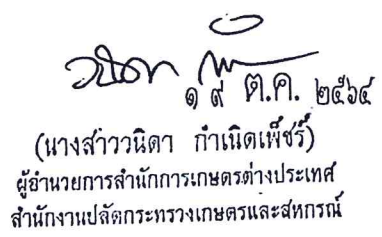 วนิดา
๑๙ ต.ค. ๒๕๖๔
(นางสาววนิดา กำเนิดเพ็ชร์)
ผู้อำนวยการสำนักการเกษตรต่างประเทศ
สำนักงานปลัดกระทรวงเกษตรและสหกรณ์